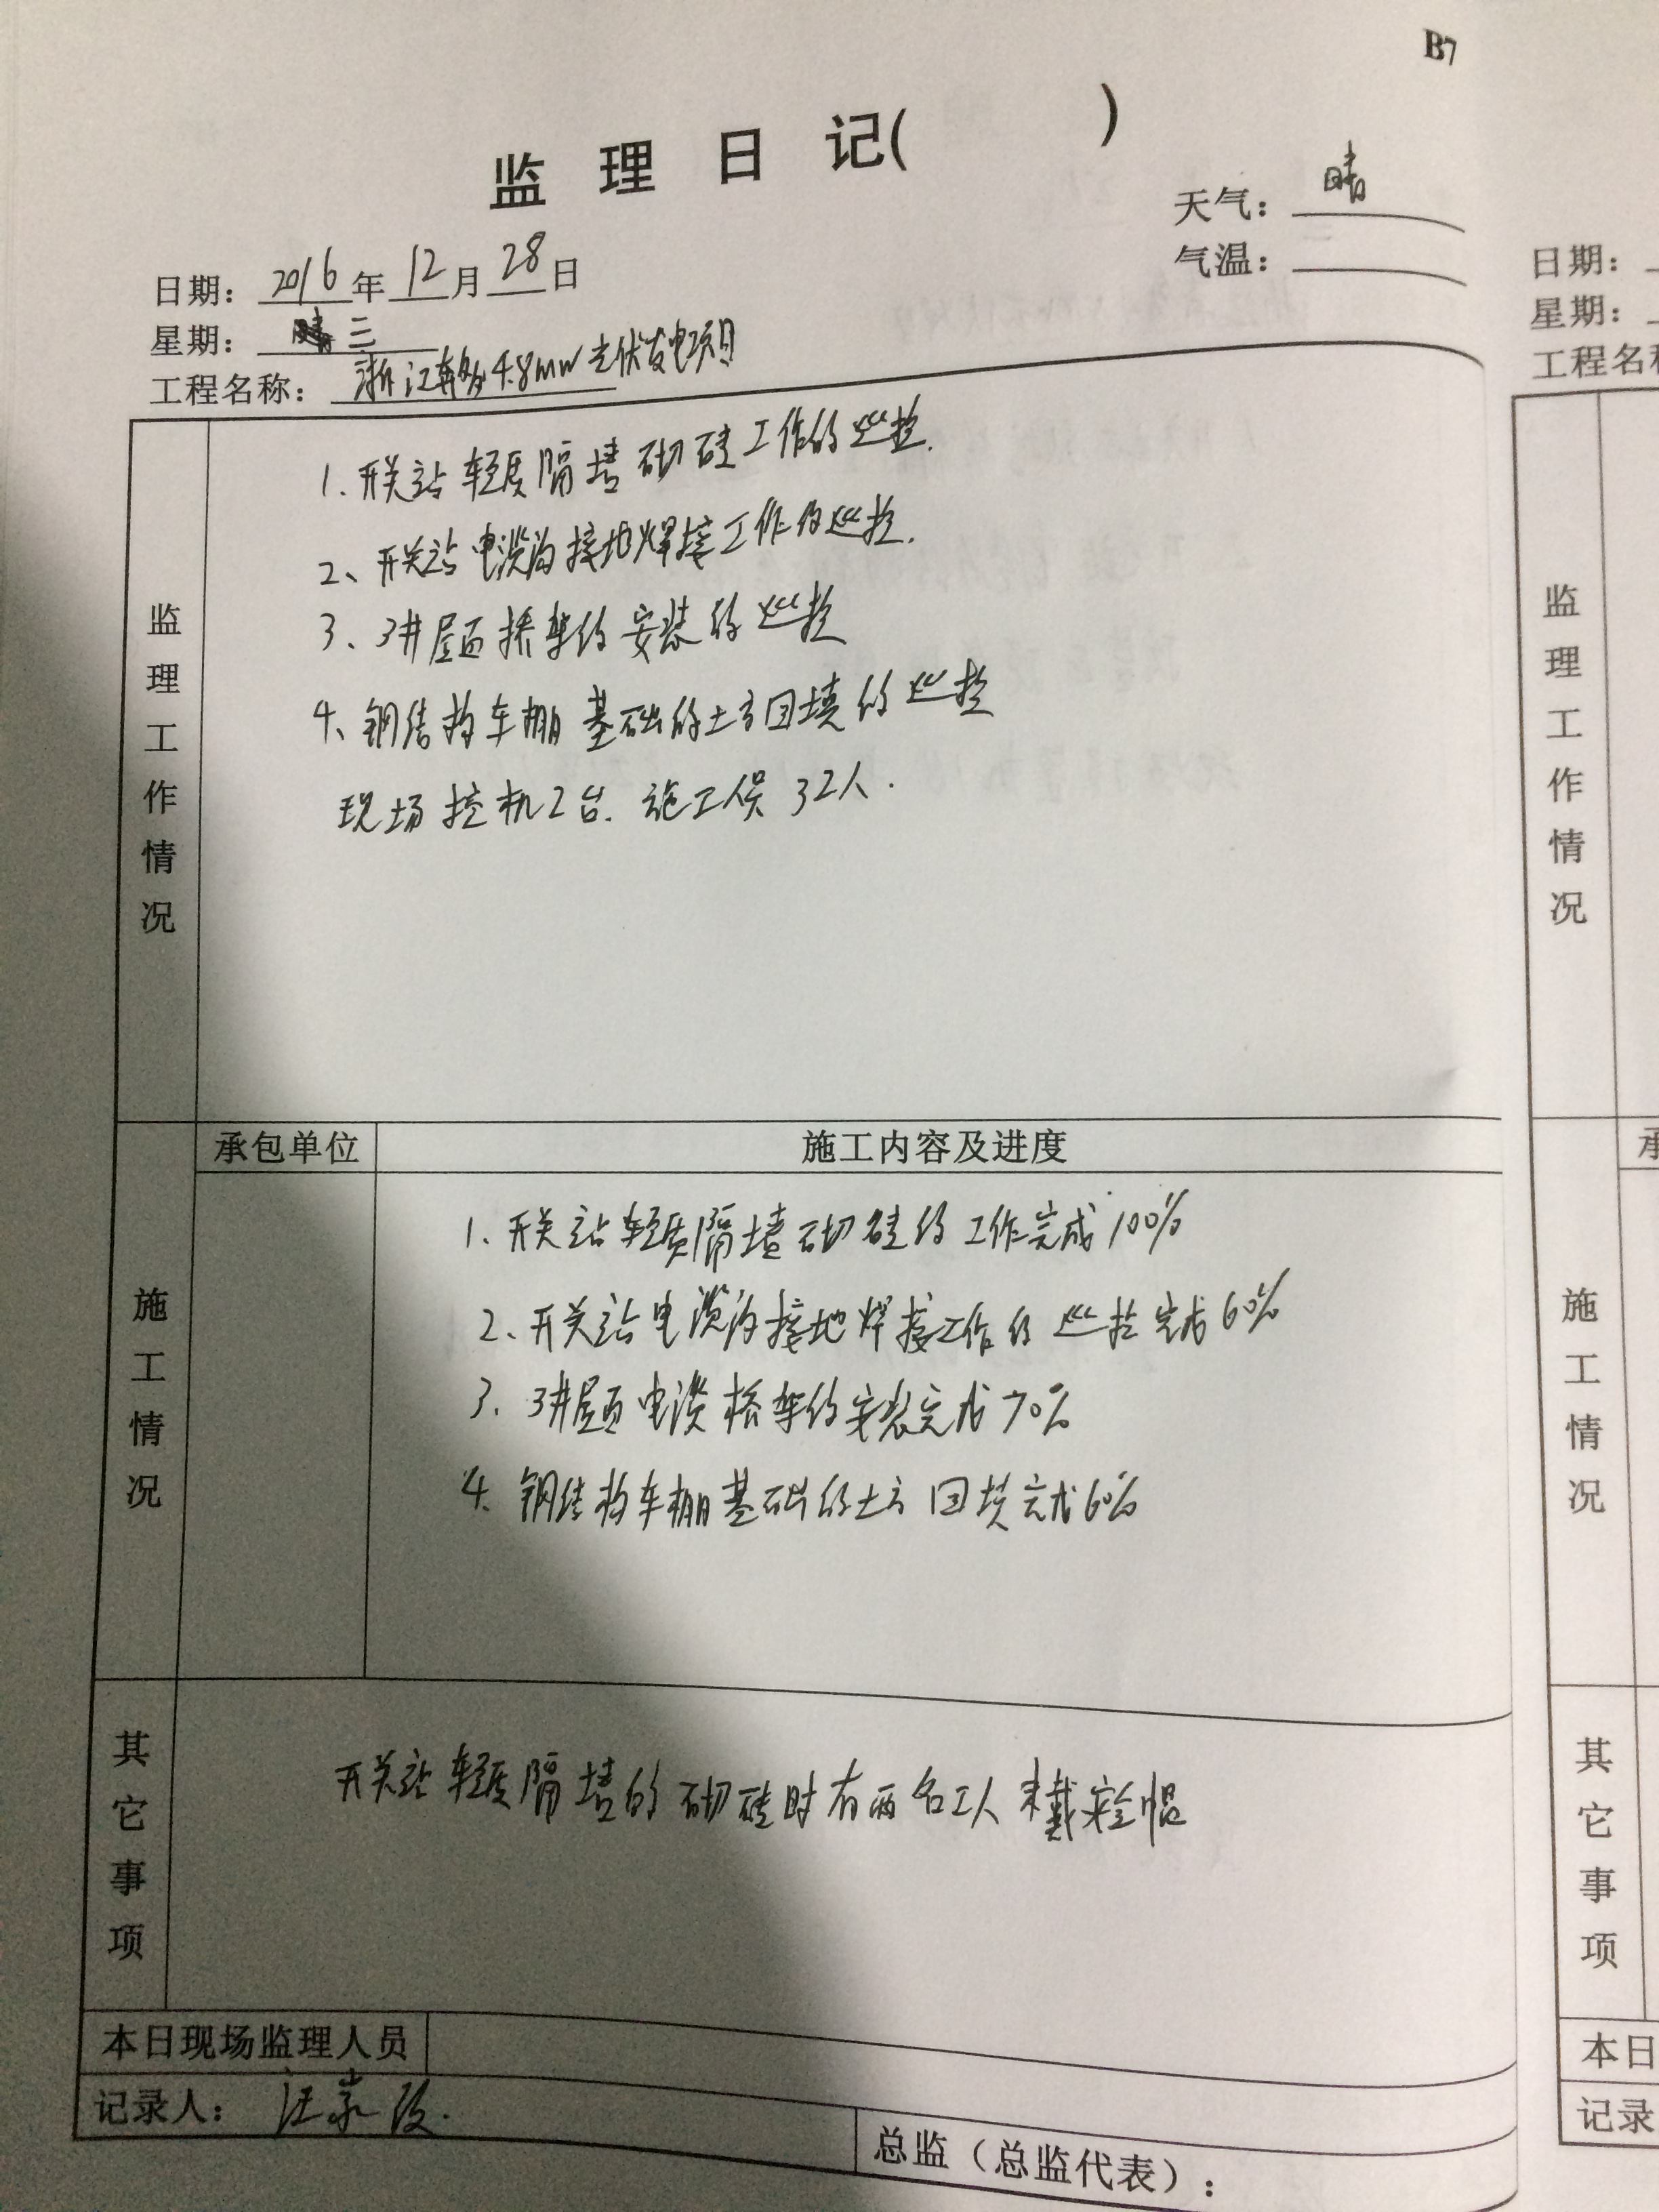 B7
监理日记( )
天气：晴
气温：
日期：2016年12月28日
星期：三
工程名称：浙江 4.8MW光伏发电项目
监理工作情况
1.开关站轻质隔墙砌砖工作的巡检.
2、开关站电缆沟接地焊接工作的巡检.
3、3#屋面桥架的安装的巡检
4、钢结构车棚基础的土方回填的巡检
现场挖机2台.施工人员32人.
承包单位 施工内容及进度
施工情况
1、开关站轻质隔墙砌砖的工作完成100%
2、开关站电缆沟接地焊接工作的巡检完成60%
3、3#屋面电缆桥架的安装完成70%
4、钢结构车棚基础的土方回填完成60%
其它事项
开关站轻质隔墙的砌砖时有两名工人未戴安全帽
本日现场监理人员
记录人：汪
总监（总监代表）：
日期：
星期：
工程名称
监理工作情况
承
施工情况
其它事项
本日
记录